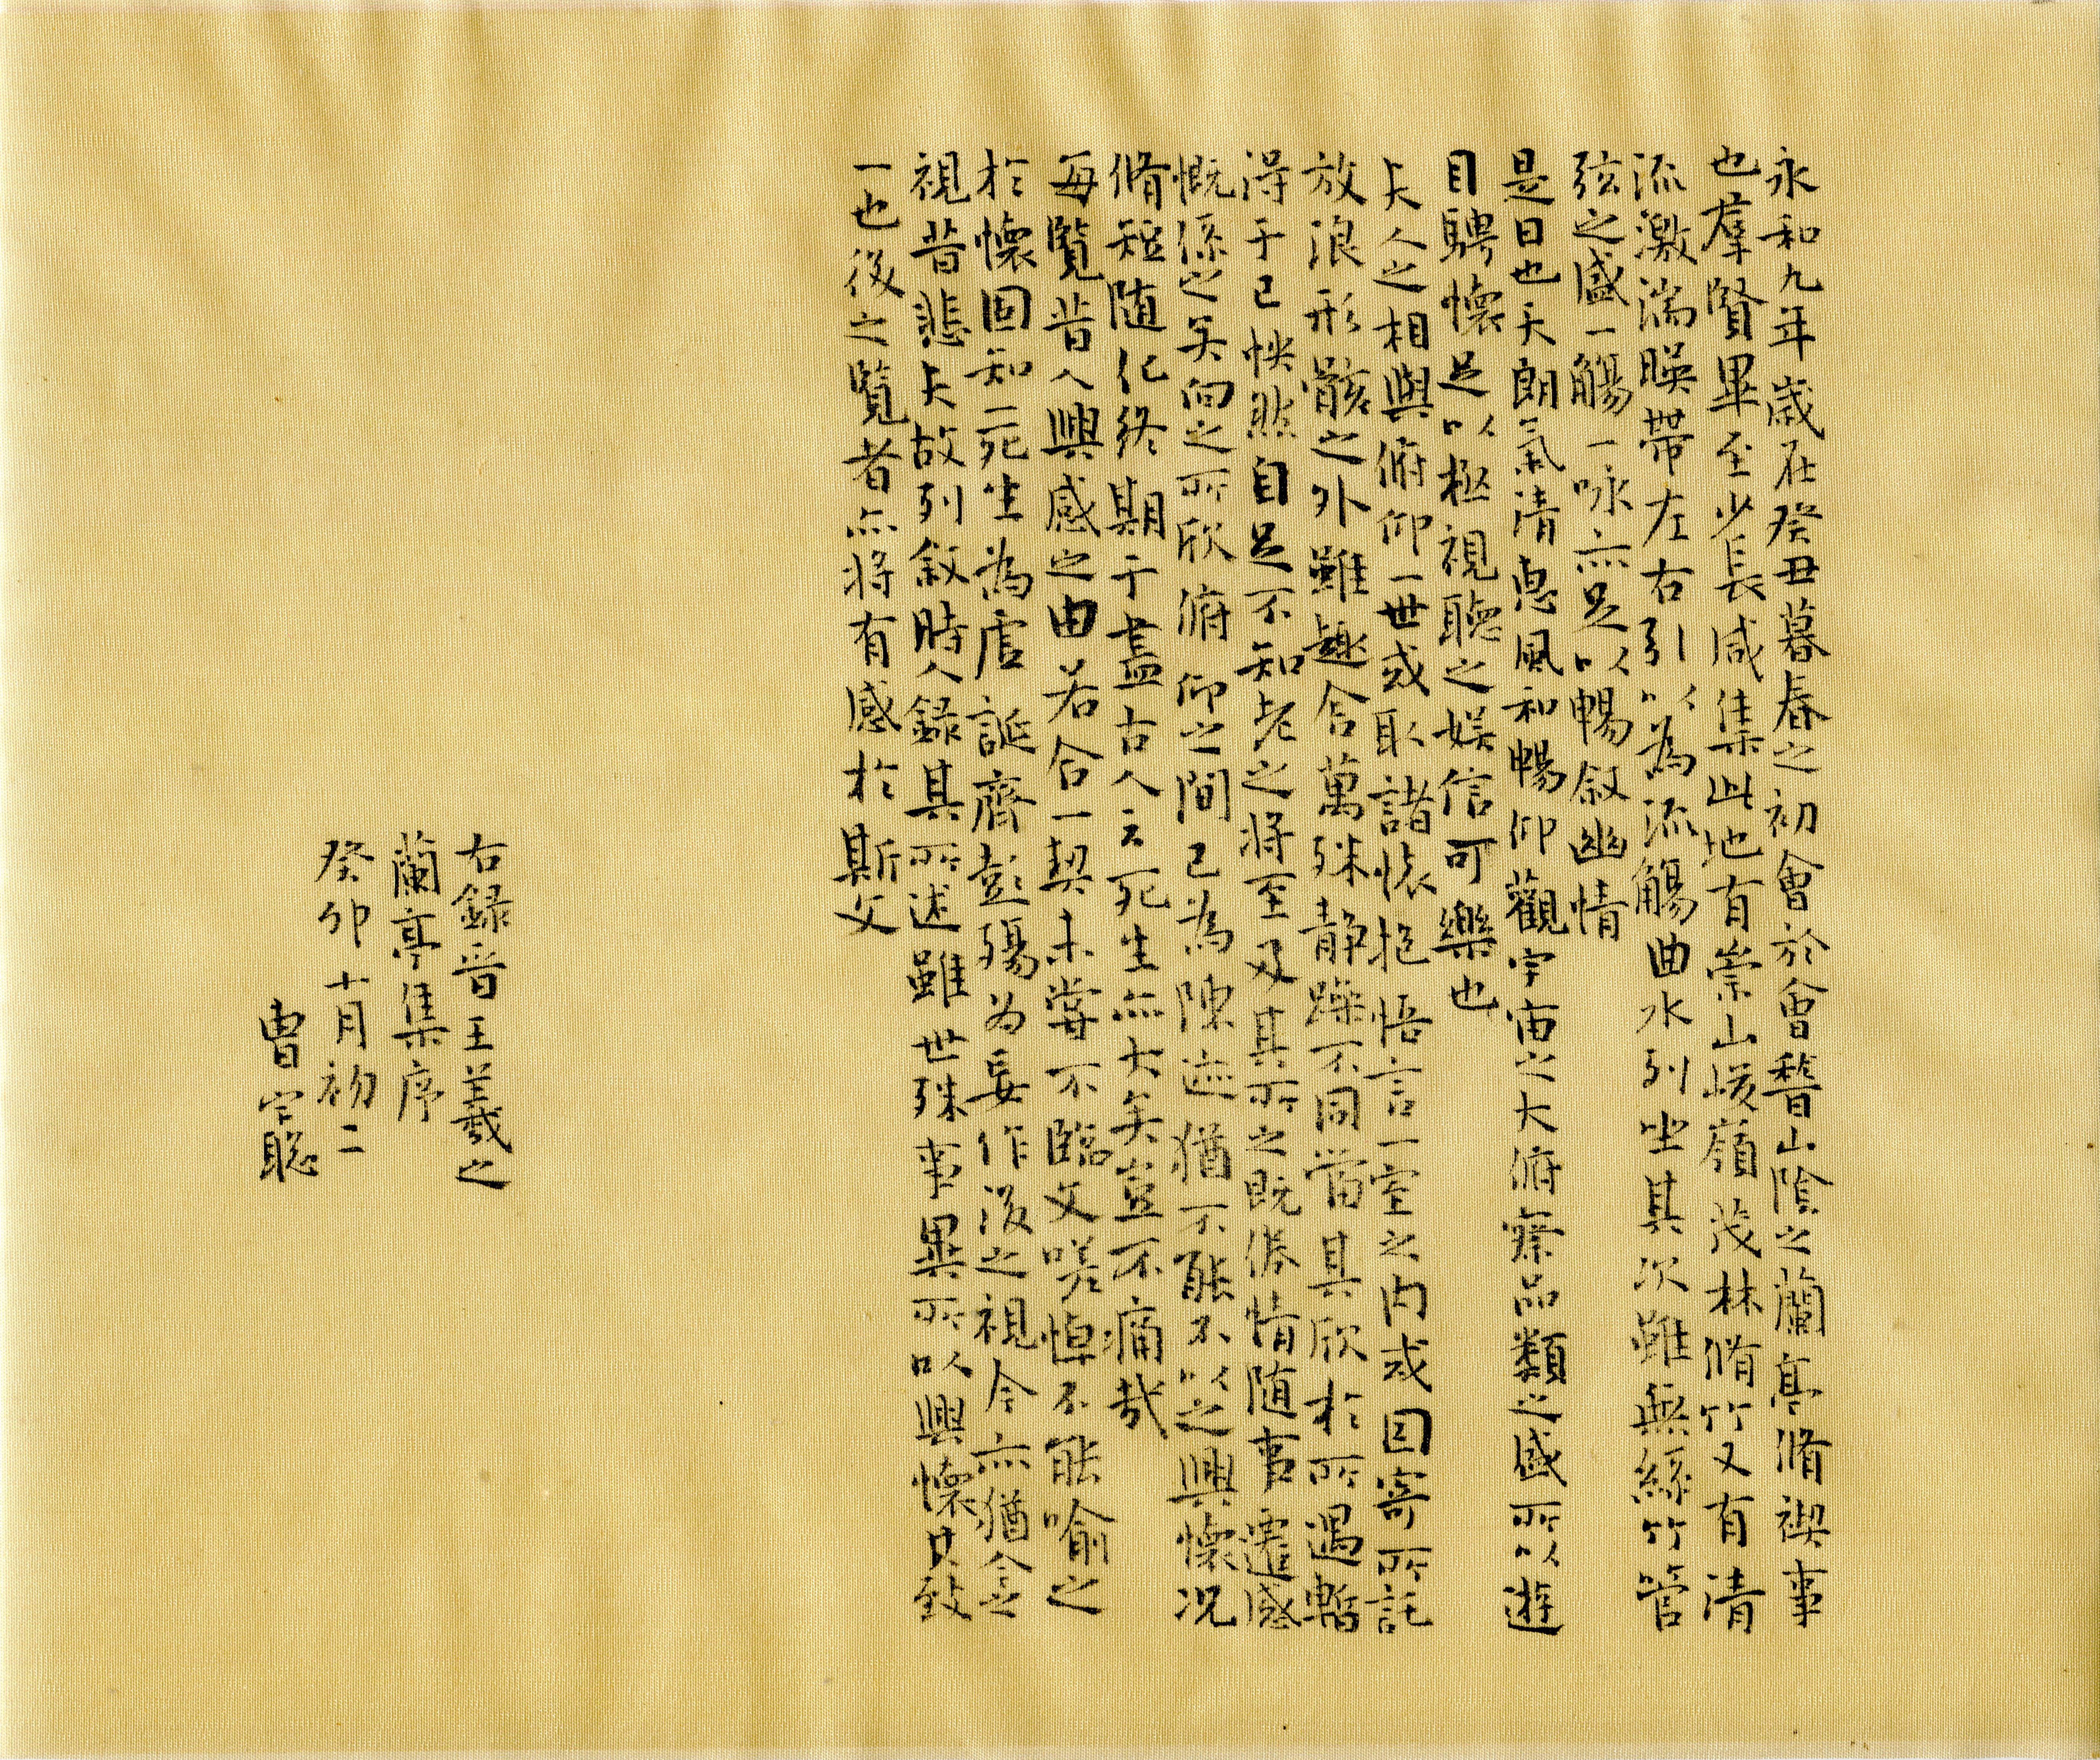 永和九年歲在癸丑暮春之初會於會稽山陰之蘭亭脩禊事
也羣賢畢至少長咸集此地有崇山峻嶺茂林脩竹又有清
流激湍暎帶左右引以為流觴曲水列坐其次雖無絲竹管
弦之盛一觴一咏亦足以暢敘幽情
是日也天朗氣清惠風和暢仰觀宇宙之大俯察品類之盛所以遊
目騁懷足以極視聽之娛信可樂也
夫人之相與俯仰一世或取諸懷抱悟言一室之內或因寄所託
放浪形骸之外雖趣舍萬殊静躁不同當其欣於所遇暫
得于己怏然自足不知老之將至及其所之既倦情随事遷感
慨係之矣向之所欣俯仰之間已為陳迹猶不能不以之興懷況
脩短随化終期于盡古人云死生亦大矣豈不痛哉
每覽昔人興感之由若合一契未嘗不臨文嗟悼不能喻之
於懷固知一死生為虛誕齊彭殤為妄作後之視今亦猶今之
視昔悲夫故列敘時人錄其所述雖世殊事異所以興懷其致
一也後之覽者亦將有感於斯文
右録晉王羲之
蘭亭集序
癸卯十月初二
曹宗聰